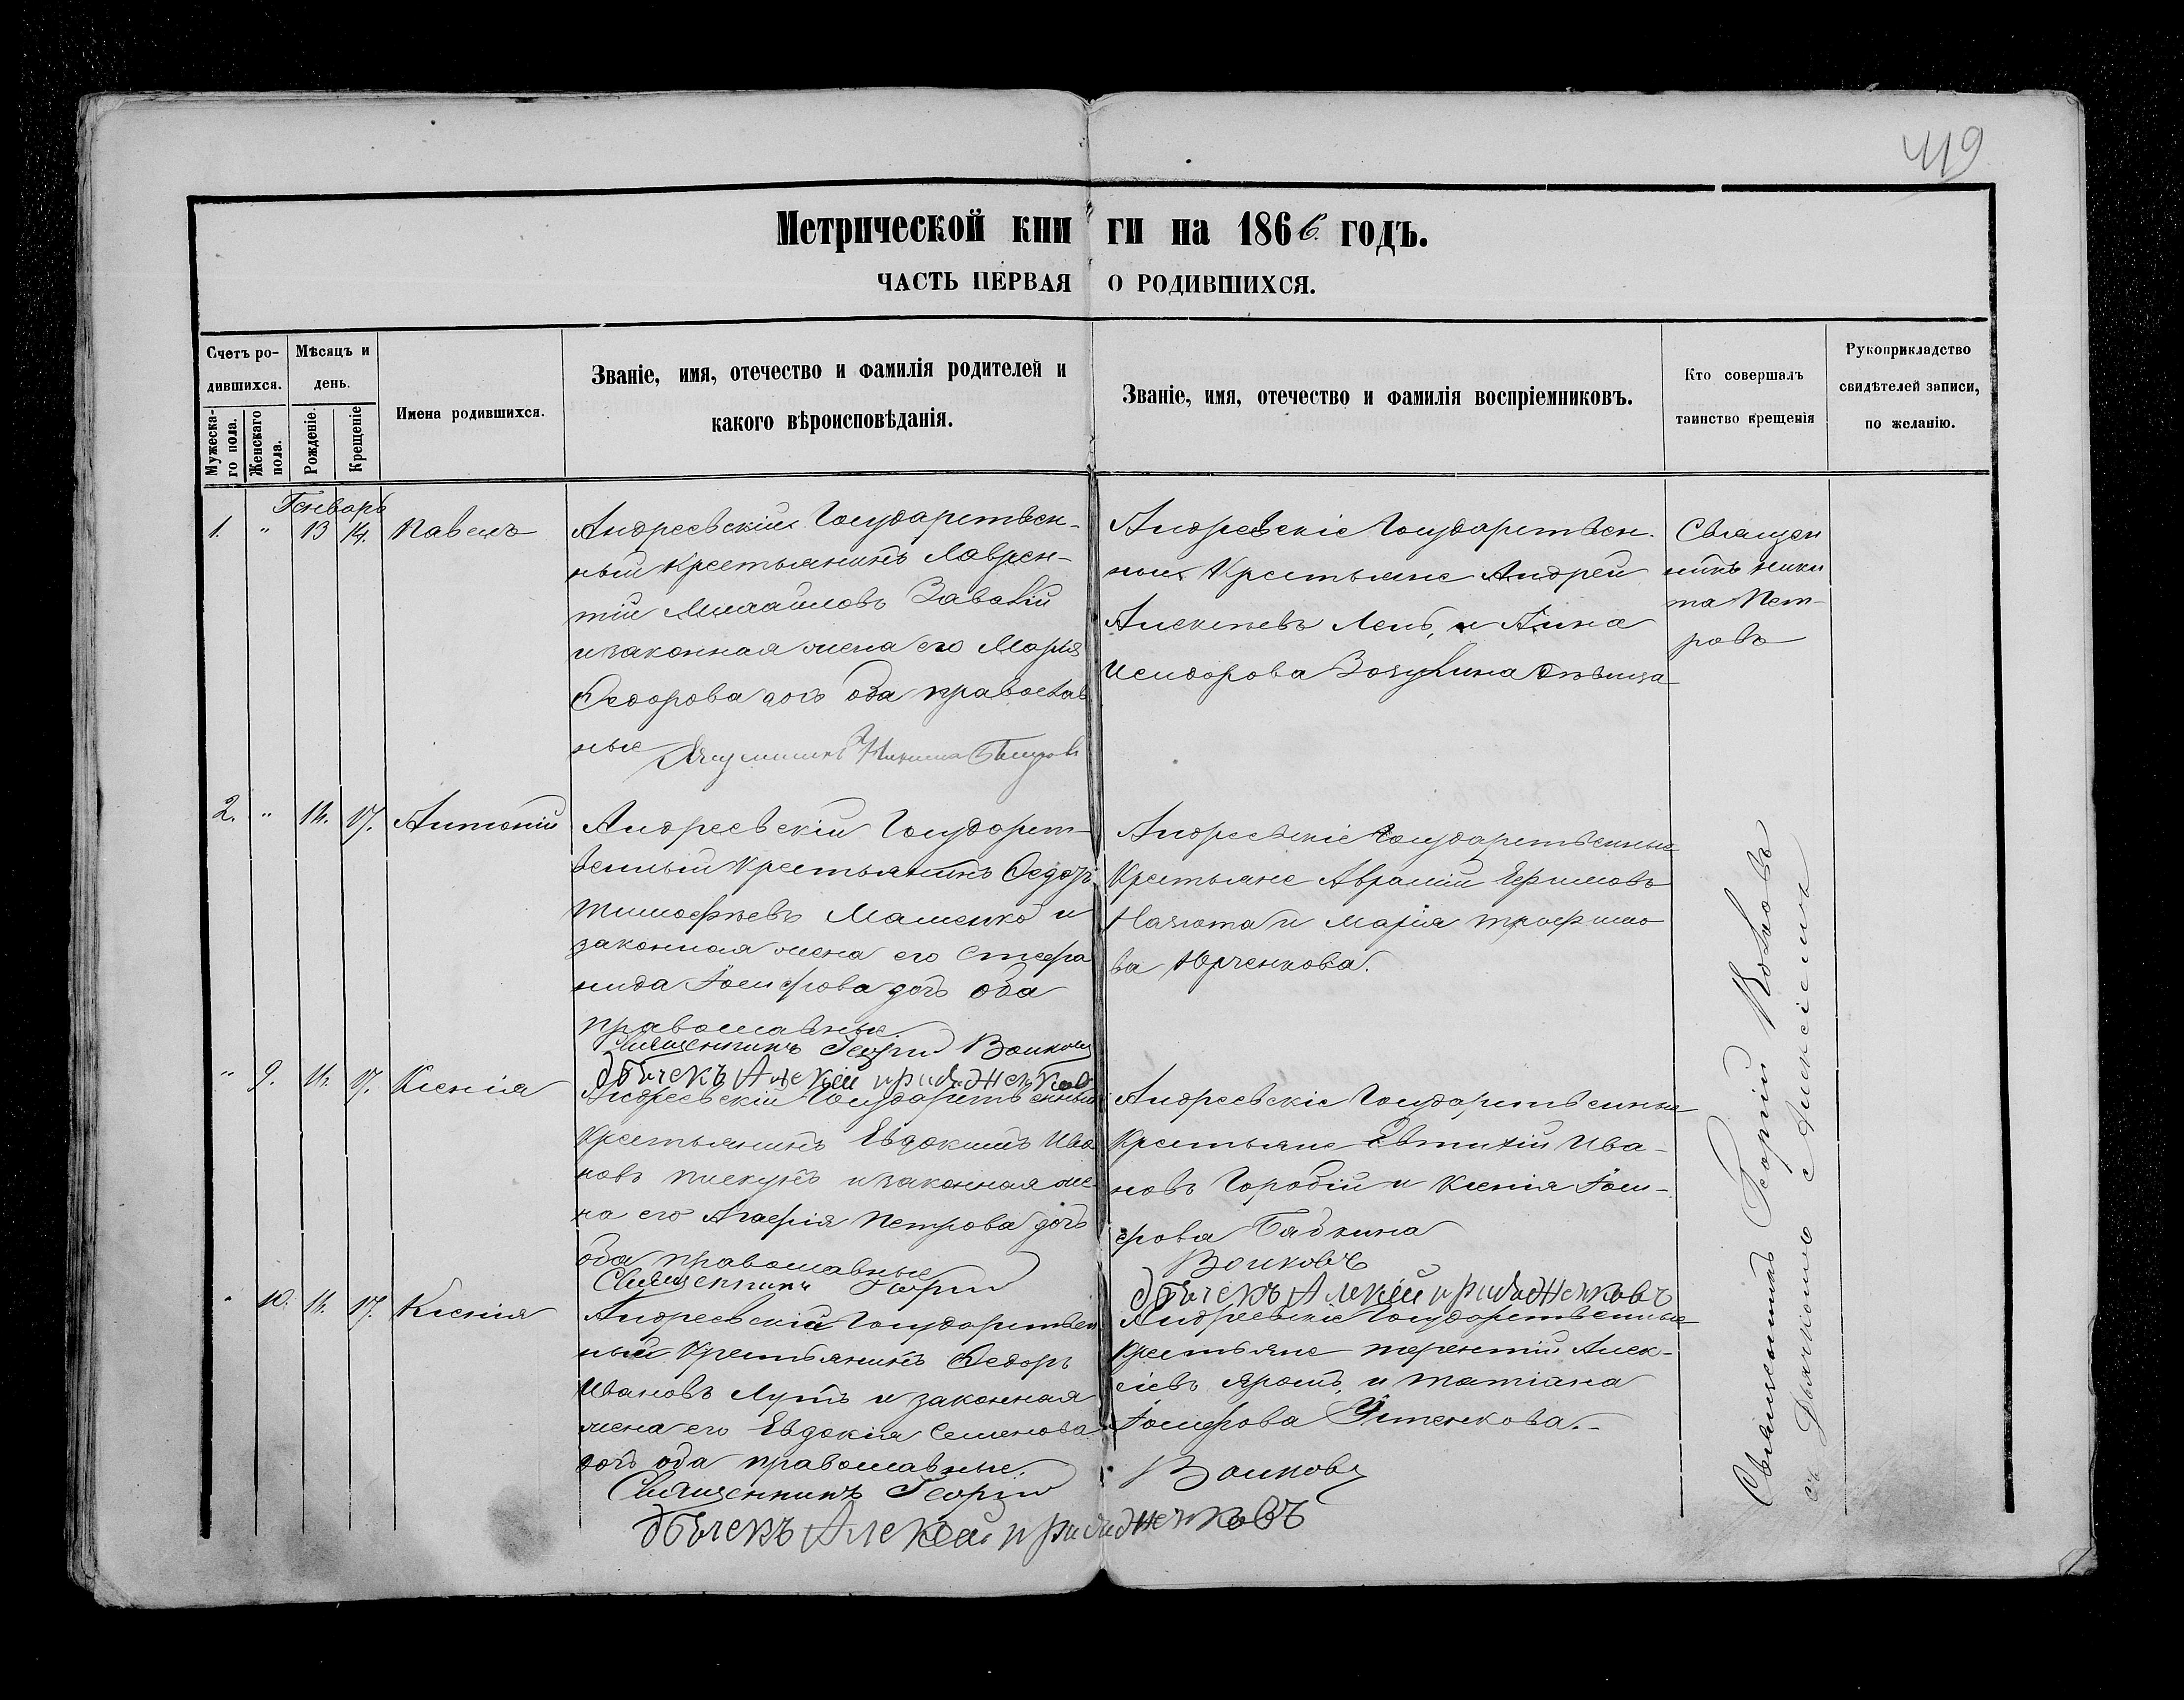 419
Метрической книги на 1866. годъ.
ЧАСТЬ ПЕРВАЯ О РОДИВШИХСЯ.
Счетъ ро-
дившихся.
Мужеска-
го пола.
Женскаго
пола.
Мѣсяцъ и
день.
Рожденіе.
Крещеніе
Имена родившихся.
Званіе, имя, отечество и фамилія родителей и
какого вѣроисповѣданія.
Званіе, имя, отечество и фамилія воспріемниковъ.
Кто совершалъ
таинство крещенія
Рукоприкладство
свидѣтелей записи,
по желанію.
Генварь
1. " 13 14. Павелъ
Андреевскій Государствен-
ный крестьянинъ Лаврен-
тій Михайловъ
и законная жена его Марья
Федорова дочь оба православ
ные
Никита Петровъ
Андреевскіе Государствен-
ные Крестьяне Андрей
Алексѣевъ Лень, и Анна
Исидорова дѣвица
Священ
никъ Ники
та Пет-
ровъ
2. " 14. 17. Антоній
Андреевскій Государст-
венный Крестьянинъ Федоръ
Тимофѣевъ Машенко и
законная жена его Стефа
нида Іосифова дочь оба
православные
Священникъ Георгій Волковъ
Алексѣй
Андреевскіе Государственные
Крестьяне Аврамій Ефимовъ
и Марія Трофимо
ва Юрченкова.
" 9. 14. 17. Ксенія
Андреевскій Государственный
Крестьянинъ Евдокимъ Ива
новъ Пискунъ и законная же-
на его Агафія Петрова дочь
оба православные
Священникъ Георгій
Андреевскіе Государственные
Крестьяне Евтихій Ива-
новъ Горобій и Ксенія Іоси-
фова Бабкина
Волковъ
Алексѣй
" 10. 14. 17. Ксенія
Андреевскій Государствен
ный Крестьянинъ Федоръ
Ивановъ и законная
жена его Евдокія Семенова
дочь оба православные.
Священникъ Георгій
Андреевскіе Государственные
Крестьяне Терентій Алек-
сіевъ и Татіана
Іосифова Устенкова.-
Волковъ
Алексѣй
Священникъ Георгій Волковъ
съ Дьячкомъ Алексіемъ